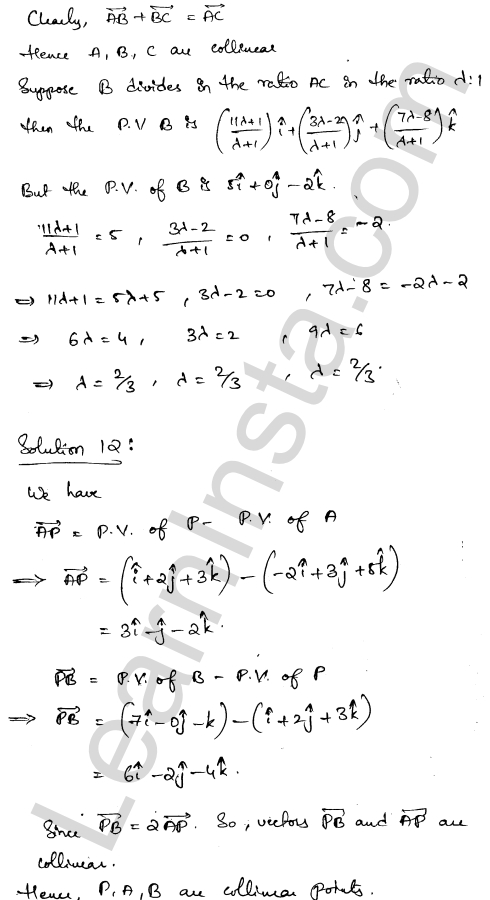 Clearly, \overrightarrow{AB} + \overrightarrow{BC} = \overrightarrow{AC}
Hence A, B, C are collinear
Suppose B divides in the ratio AC in the ratio λ:1
then the P.V B is (\frac{11λ+1}{λ+1})î + (\frac{3λ-2}{λ+1})ĵ + (\frac{7λ-8}{λ+1})k̂
But the P.V. of B is 5î + 0ĵ - 2k̂.
\frac{11λ+1}{λ+1} = 5 , \frac{3λ-2}{λ+1} = 0 , \frac{7λ-8}{λ+1} = -2.
⇒ 11λ+1 = 5λ+5 , 3λ-2=0 , 7λ-8 = -2λ-2
⇒ 6λ = 4 , 3λ = 2 , 9λ = 6
⇒ λ = 2/3 , λ = 2/3 , λ = 2/3.
Solution 12:
We have
\overrightarrow{AP} = P.V. of P - P.V. of A
⇒ \overrightarrow{AP} = (î + 2ĵ + 3k̂) - (-2î + 3ĵ + 5k̂)
= 3î - ĵ - 2k̂.
\overrightarrow{PB} = P.V. of B - P.V. of P
⇒ \overrightarrow{PB} = (7î - 0ĵ - k) - (î + 2ĵ + 3k̂)
= 6î - 2ĵ - 4k̂.
Since \overrightarrow{PB} = 2\overrightarrow{AP}. So, vectors \overrightarrow{PB} and \overrightarrow{AP} are
collinear.
Hence, P, A, B are collinear points.
LearnInsta.com